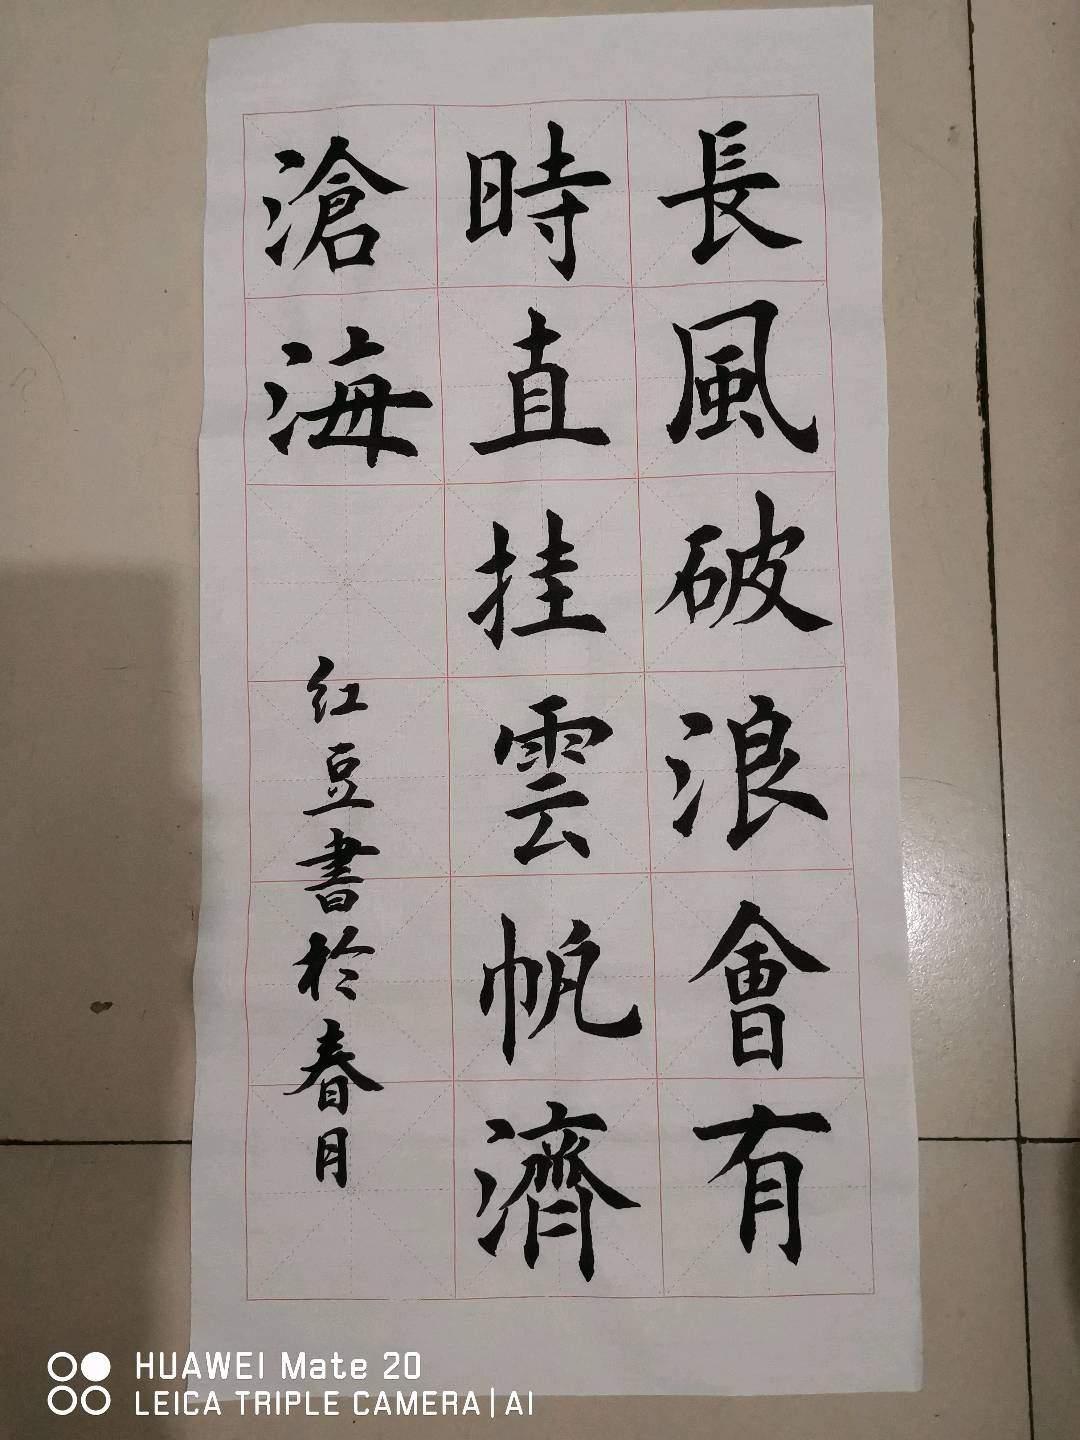 長風破浪會有
時直挂雲帆濟
滄海
红豆書於春月
HUAWEI Mate 20
LEICA TRIPLE CAMERA | AI